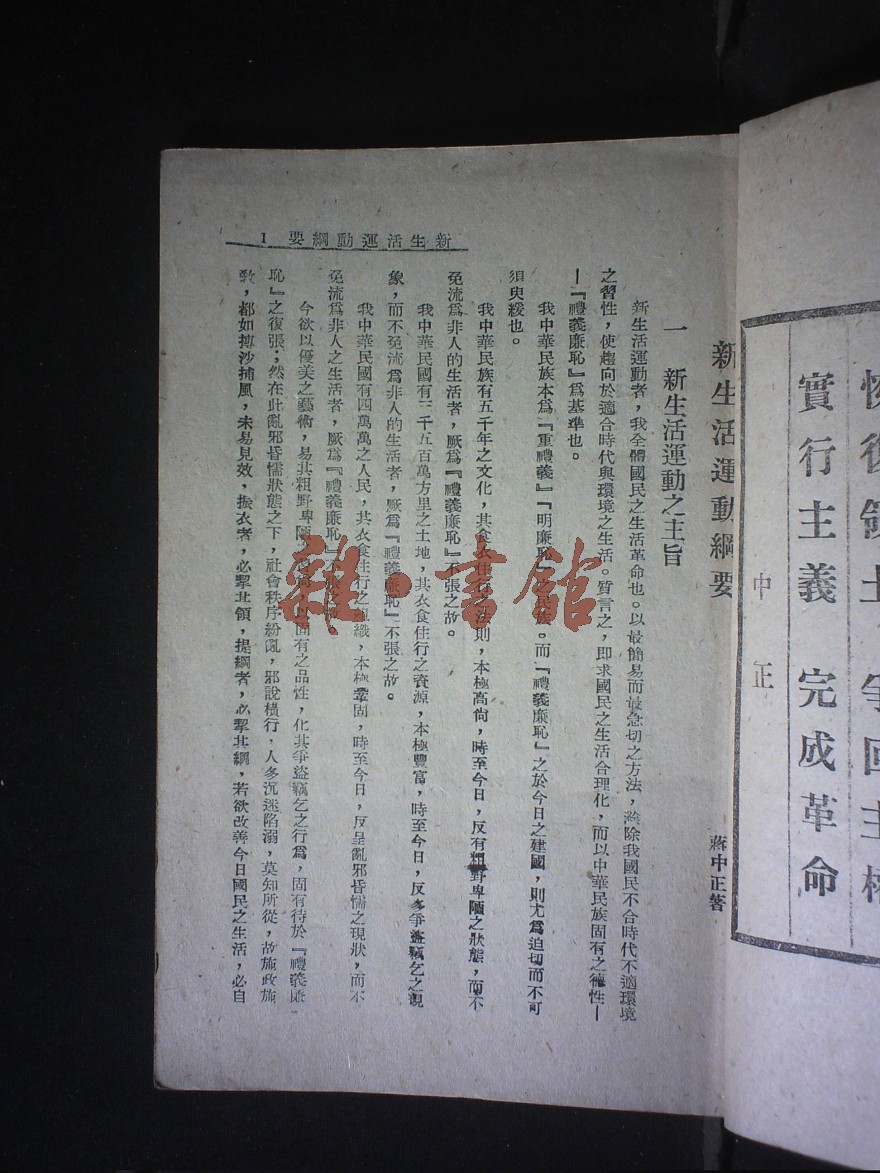 實行主義 完成革命
中正
新生活運動綱要 1
新生活運動綱要
蔣中正著
一 新生活運動之主旨
新生活運動者，我全體國民之生活革命也。以最簡易而最急切之方法，滌除我國民不合時代不適環境
之習性，使趨向於適合時代與環境之生活。質言之，即求國民之生活合理化，而以中華民族固有之德性—
—『禮義廉恥』爲基準也。
我中華民族本爲「重禮義」「明廉恥」之民族。而『禮義廉恥』之於今日之建國，則尤爲迫切而不可
須臾緩也。
我中華民族有五千年之文化，其食衣住行之法則，本極高尚，時至今日，反有粗野卑陋之狀態，而不
免流爲非人的生活者，厥爲『禮義廉恥』不張之故。
我中華民國有三千五百萬方里之土地，其衣食住行之資源，本極豐富，時至今日，反多爭盜竊乞之現
象，而不免流爲非人的生活者，厥爲『禮義廉恥』不張之故。
我中華民國有四萬萬之人民，其衣食住行之組織，本極鞏固，時至今日，反呈亂邪昏懦之現狀，而不
免流爲非人之生活者，厥爲『禮義廉恥』不張之故。
今欲以優美之藝術，易其粗野卑陋 以固有之品性，化其爭盜竊乞之行爲，固有待於『禮義廉
恥』之復張；然在此亂邪昏懦狀態之下，社會秩序紛亂，邪說橫行，人多沉迷陷溺，莫知所從，故施政施
教，都如摶沙捕風，未易見效，振衣者，必挈其領，提綱者，必挈其綱，若欲改善今日國民之生活，必自
雜·書館